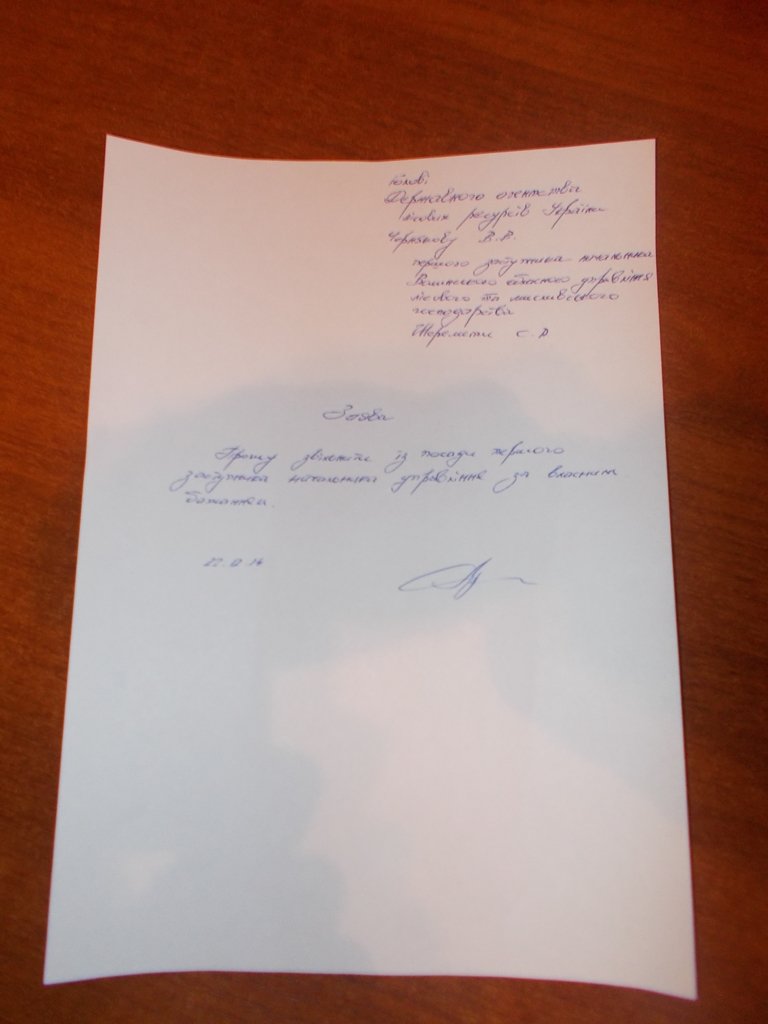 Голові
Державного агентства
лісових ресурсів України
Чернякову В.В.
першого заступника начальника
Волинського обласного управління
лісового та мисливського
господарства
Шеремети С.Р
Заява
Прошу звільнити із посади першого
заступника начальника управління за власним
бажанням.